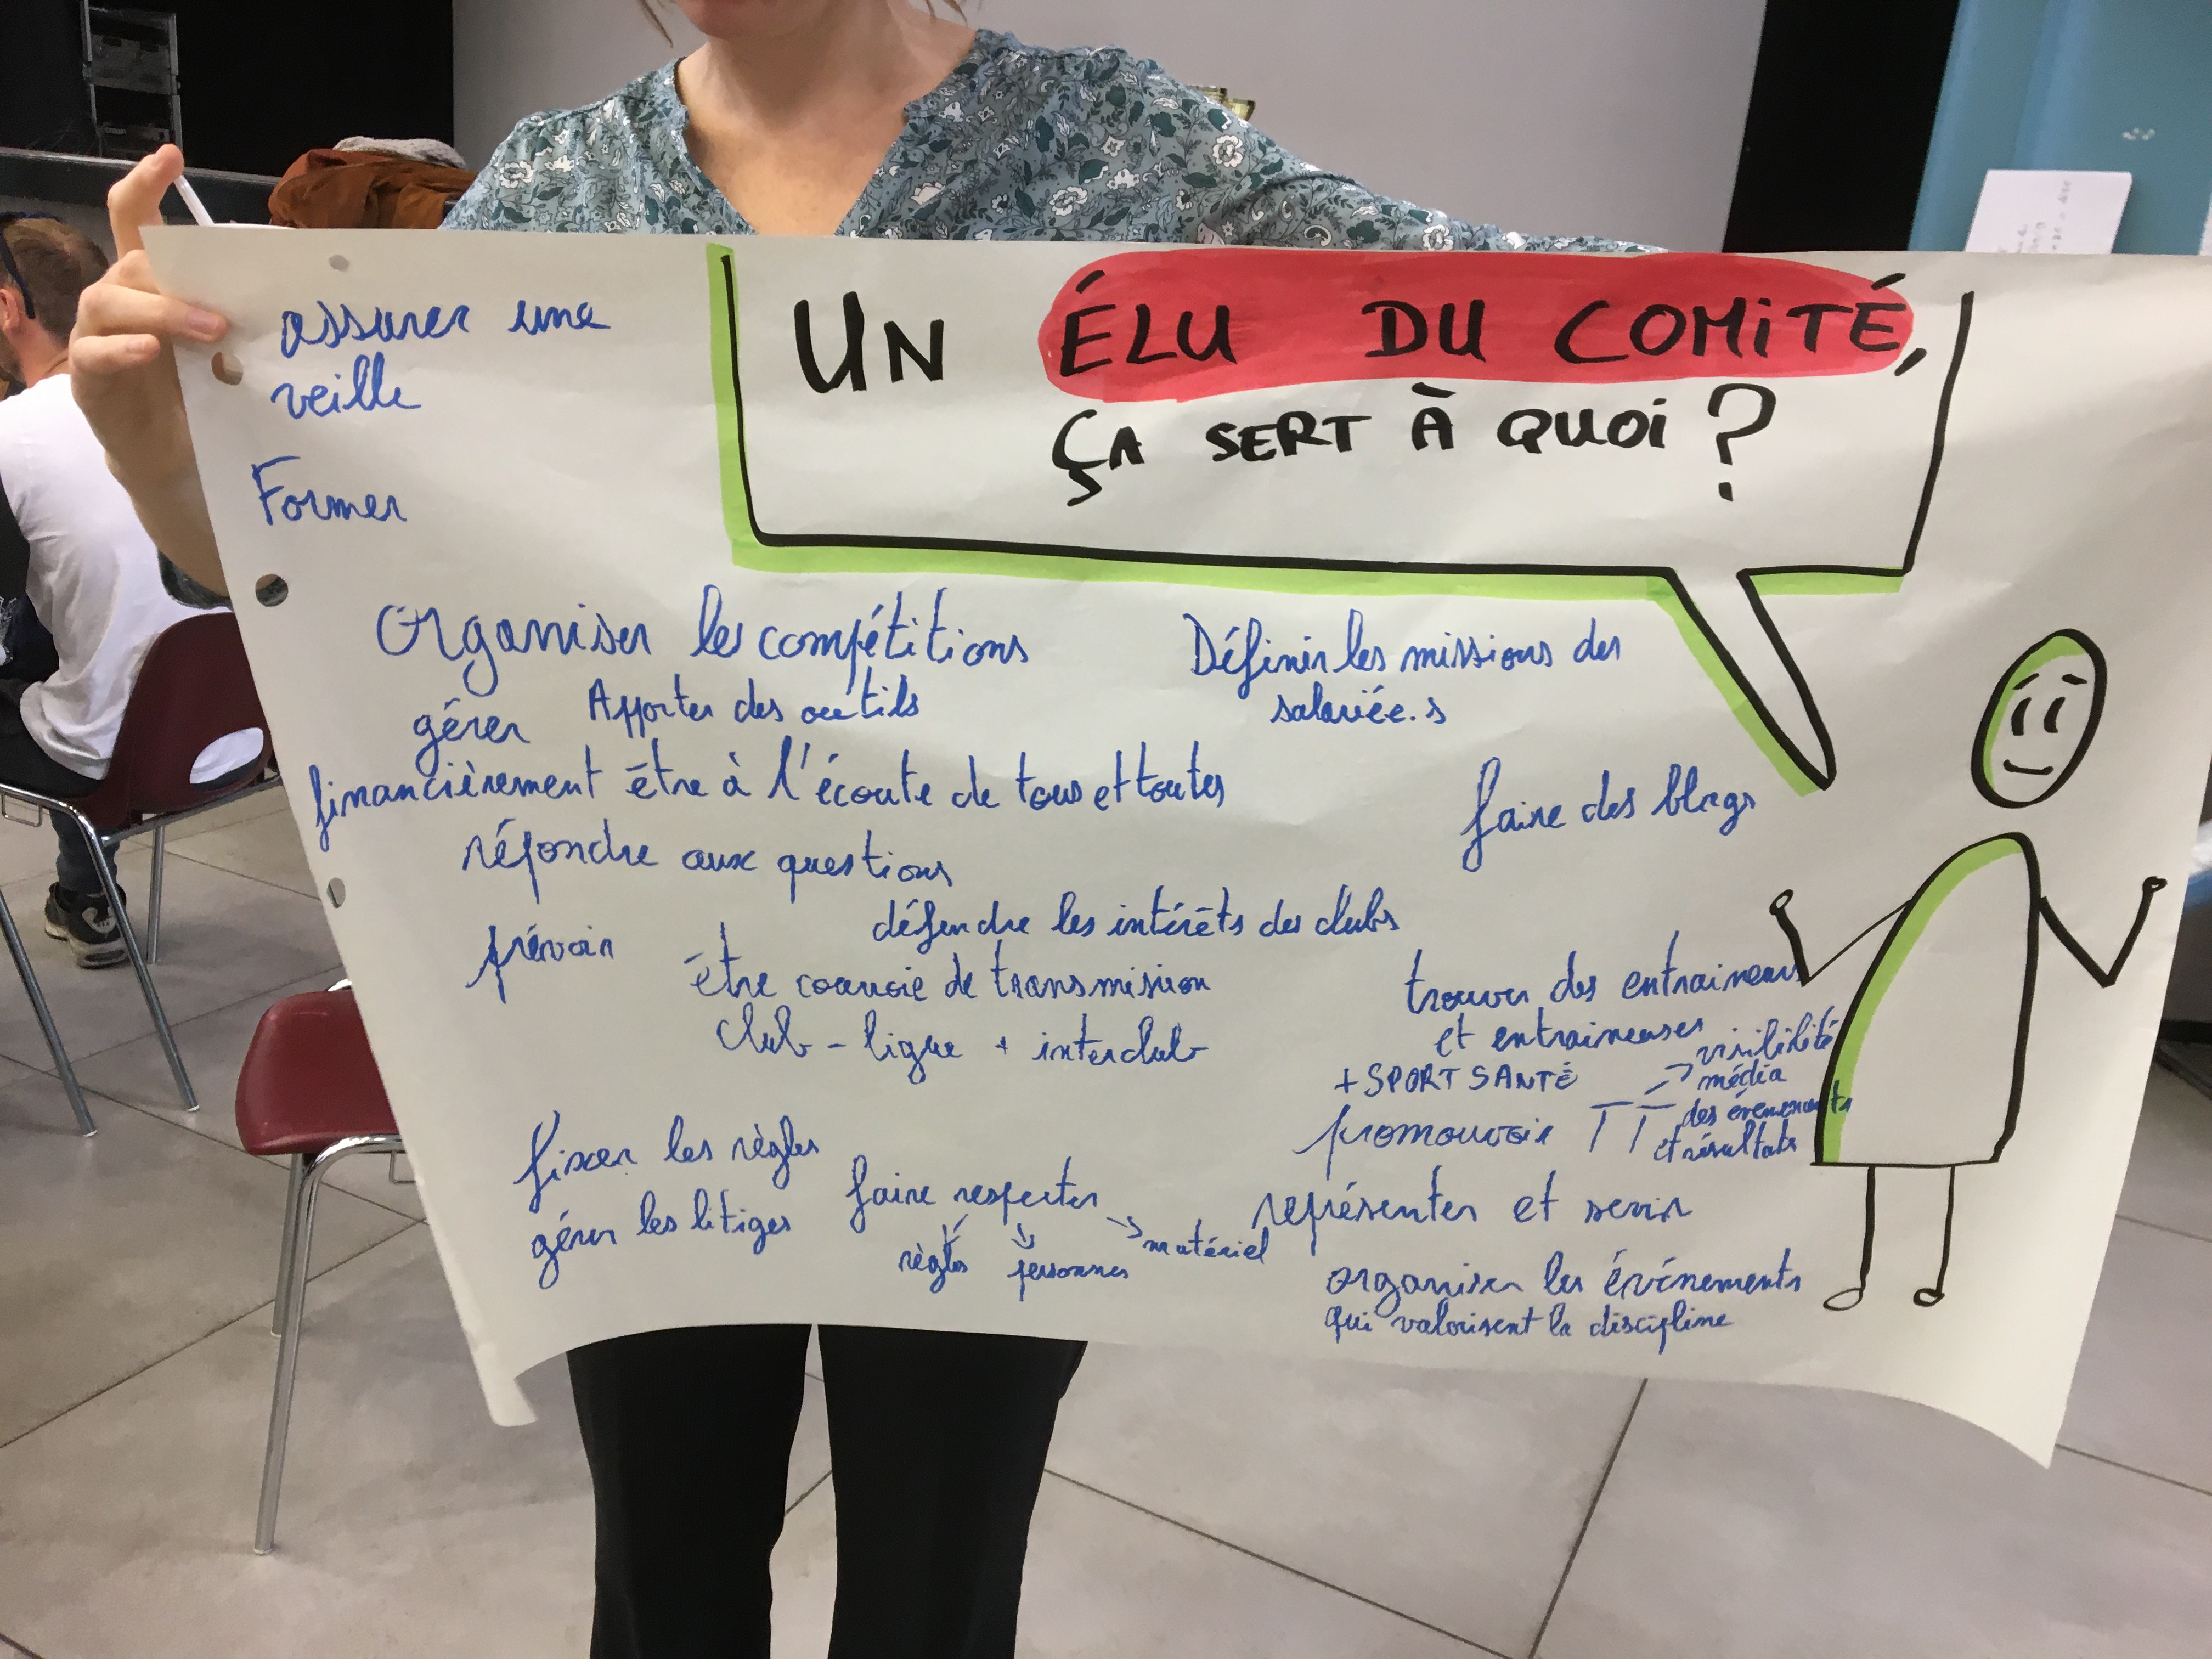 UN ÉLU DU COMITÉ,
ÇA SERT À QUOI ?
assurer une
veille
Former
Organiser les compétitions
Définir les missions des
salarié.e.s
gérer
financièrement
Apporter des outils
être à l'écoute de tous et toutes
faire des blogs
répondre aux questions
défendre les intérêts des clubs
prévoir
être courroie de transmission
club - ligue + interclub
trouver des entraineurs
et entraineuses
+ SPORT SANTÉ
promouvoir TT
visibilité
média
des évènements
et résultats
fixer les règles
gérer les litiges
faire respecter
règles
personnes
matériel
représenter et servir
organiser les événements
qui valorisent la discipline